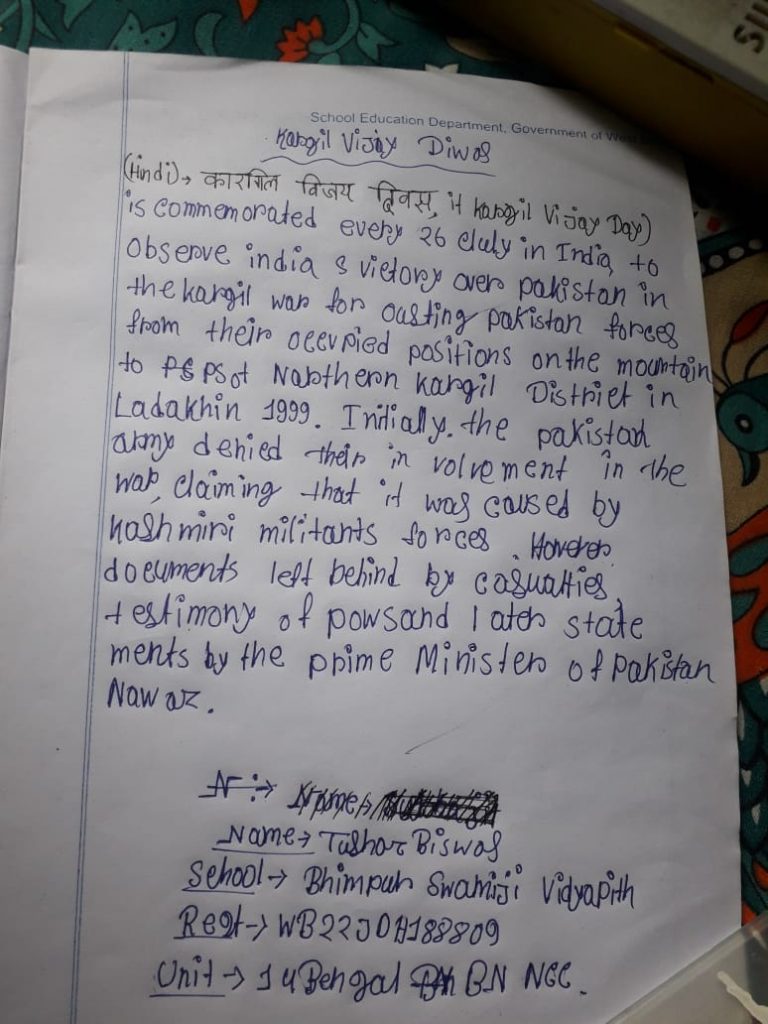 School Education Department, Government of West
Kargil Vijay Diwas
(Hindi)→ कारगिल विजय दिवस, it Kargil Vijay Day)
is commemorated every 26 July in India, to
observe india s victory over pakistan in
the kargil war for ousting pakistan forces
from their occupied positions on the mountain
to psot Northern Kargil District in
Ladakhin 1999. Initially. the pakistan
army denied their in volvement in the
war, claiming that it was caused by
kashmiri militants forces. However
documents left behind by casualties,
testimony of powsand later state
ments by the prime Minister of pakistan
Nawaz.
N:→ Name→
Name→ Tushar Biswas
School→ Bhimpur Swamiji Vidyapith
Regt→ WB22JDA188809
Unit→ 14 Bengal BN NCC.
SU